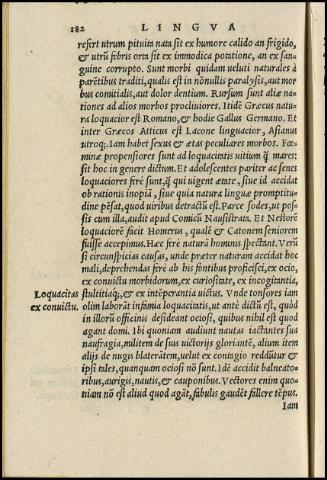 182 LINGVA
refert utrum pituita nata sit ex humore calido an frigido,
& utrū febris orta sit ex immodica potatione, an ex san-
guine corrupto. Sunt morbi quidam ueluti naturales à
parētibus traditi, qualis est in nonnullis paralysis, aut mor
bus comitialis, aut dolor dentium. Rursum sunt aliæ na-
tiones ad alios morbos procliuiores. Itidē Græcus natu-
ra loquacior est Romano, & hodie Gallus Germano. Et
inter Græcos Atticus est Lacone linguacior, Asianus
utroq;. Iam habet sexus & ætas peculiares morbos. Fœ-
minæ propensiores sunt ad loquacitatis uitium q̄ mares:
sit hoc in genere dictum. Et adolescentes pariter ac senes
loquaciores ferè sunt, q̄ qui uigent ætate, siue id accidat
ob rationis inopiā, siue quia natura linguæ promptitu-
dine pēsat, quod uiribus detractū est. Parce sodes, ut pos-
sis cum illa, audit apud Comicū Nausistrata. Et Nestorē
loquaciorē facit Homerus, qualē & Catonem seniorem
fuisse accepimus. Hæc ferè naturā hominis spectant. Verū
si circunspicias causas, unde præter naturam accidat hoc
mali, deprehendas ferè ab his fontibus proficisci, ex ocio,
ex conuictu morborum, ex curiositate, ex incogitantia,
Loquacitas stultitiaq;, & ex intēperantia uictus. Vnde tonsores iam
ex conuictu. olim laborāt infamia loquacitatis, ut antè dictū est, quòd
in illorū officinis desideant ociosi, quibus nihil est quod
agant domi. Ibi quoniam audiunt nautas iactantes sua
naufragia, militem de suis uictorijs gloriantē, alium item
alijs de nugis blaterātem, uelut ex contagio reddūtur &
ipsi tales, quanquam ociosi nō sunt. Idē accidit balneato-
ribus, aurigis, nautis, & cauponibus. Vectores enim quo-
niam nō est aliud quod agāt, fabulis gaudēt fallere tēpus.
Iam